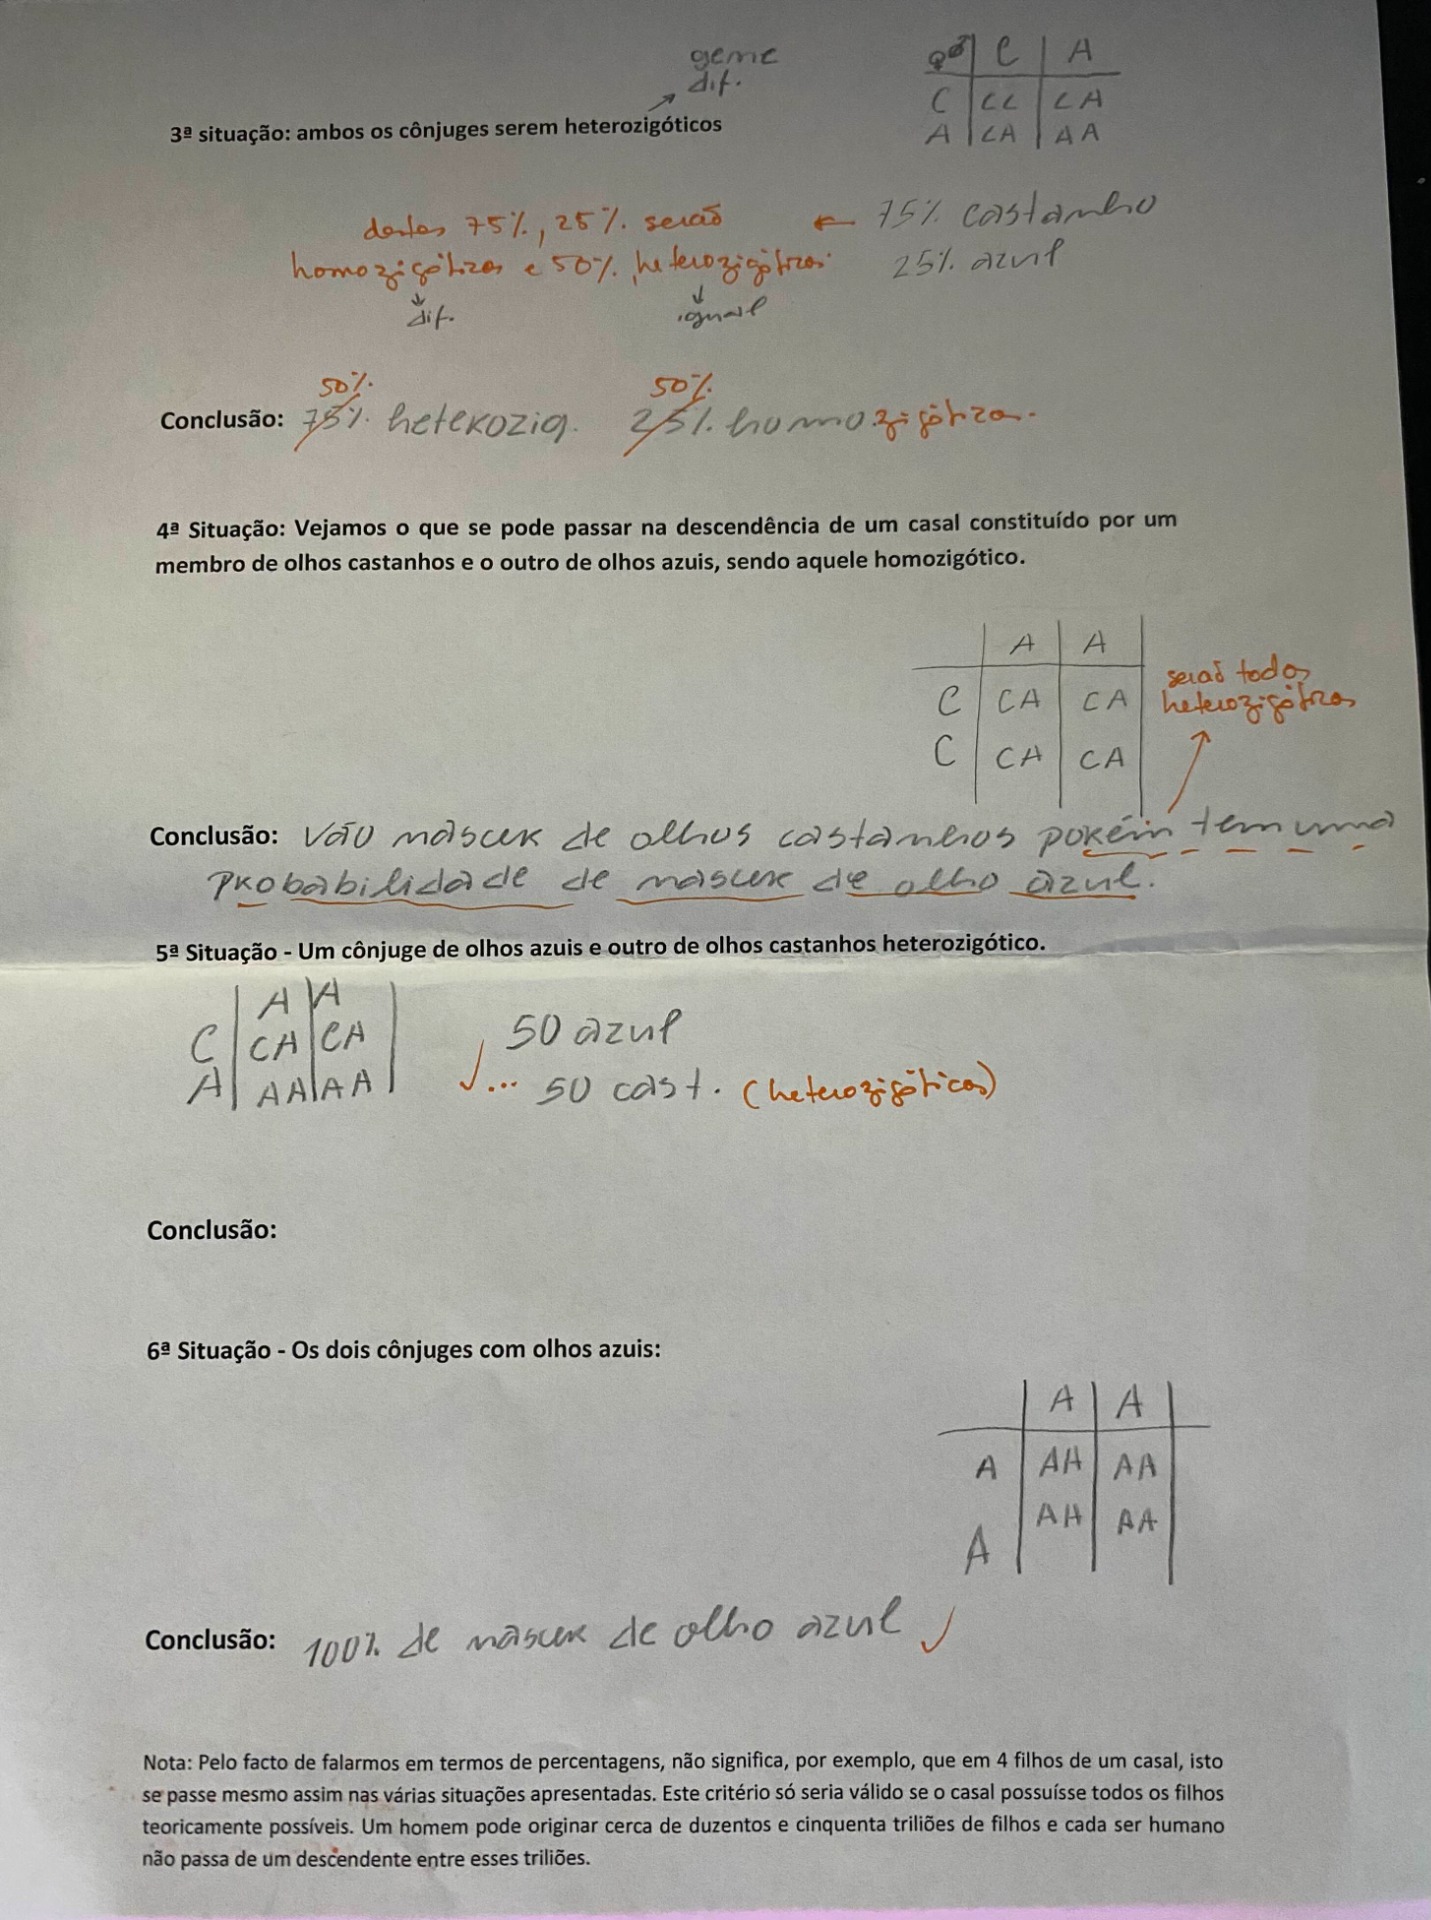 geme
dif.
♀♂ C A
C CC CA
A CA AA
3ª situação: ambos os cônjuges serem heterozigóticos
destes 75%, 25% serão ← 75% castanho
homozigóticos e 50% heterozigóticos. 25% azul
dif. igual
50% 50%
Conclusão: 75% heterozig. 25% homozigóticos.
4ª Situação: Vejamos o que se pode passar na descendência de um casal constituído por um
membro de olhos castanhos e o outro de olhos azuis, sendo aquele homozigótico.
A A
C CA CA
C CA CA
serão todos
heterozigóticos
Conclusão: Vão nascer de olhos castanhos porém tem uma
probabilidade de nascer de olho azul.
5ª Situação - Um cônjuge de olhos azuis e outro de olhos castanhos heterozigótico.
A A
C CA CA
A AA AA
50 azul
... 50 cast. (heterozigóticos)
Conclusão:
6ª Situação - Os dois cônjuges com olhos azuis:
A A
A AA AA
A AA AA
Conclusão: 100% de nascer de olho azul ✓
Nota: Pelo facto de falarmos em termos de percentagens, não significa, por exemplo, que em 4 filhos de um casal, isto
se passe mesmo assim nas várias situações apresentadas. Este critério só seria válido se o casal possuísse todos os filhos
teoricamente possíveis. Um homem pode originar cerca de duzentos e cinquenta triliões de filhos e cada ser humano
não passa de um descendente entre esses triliões.